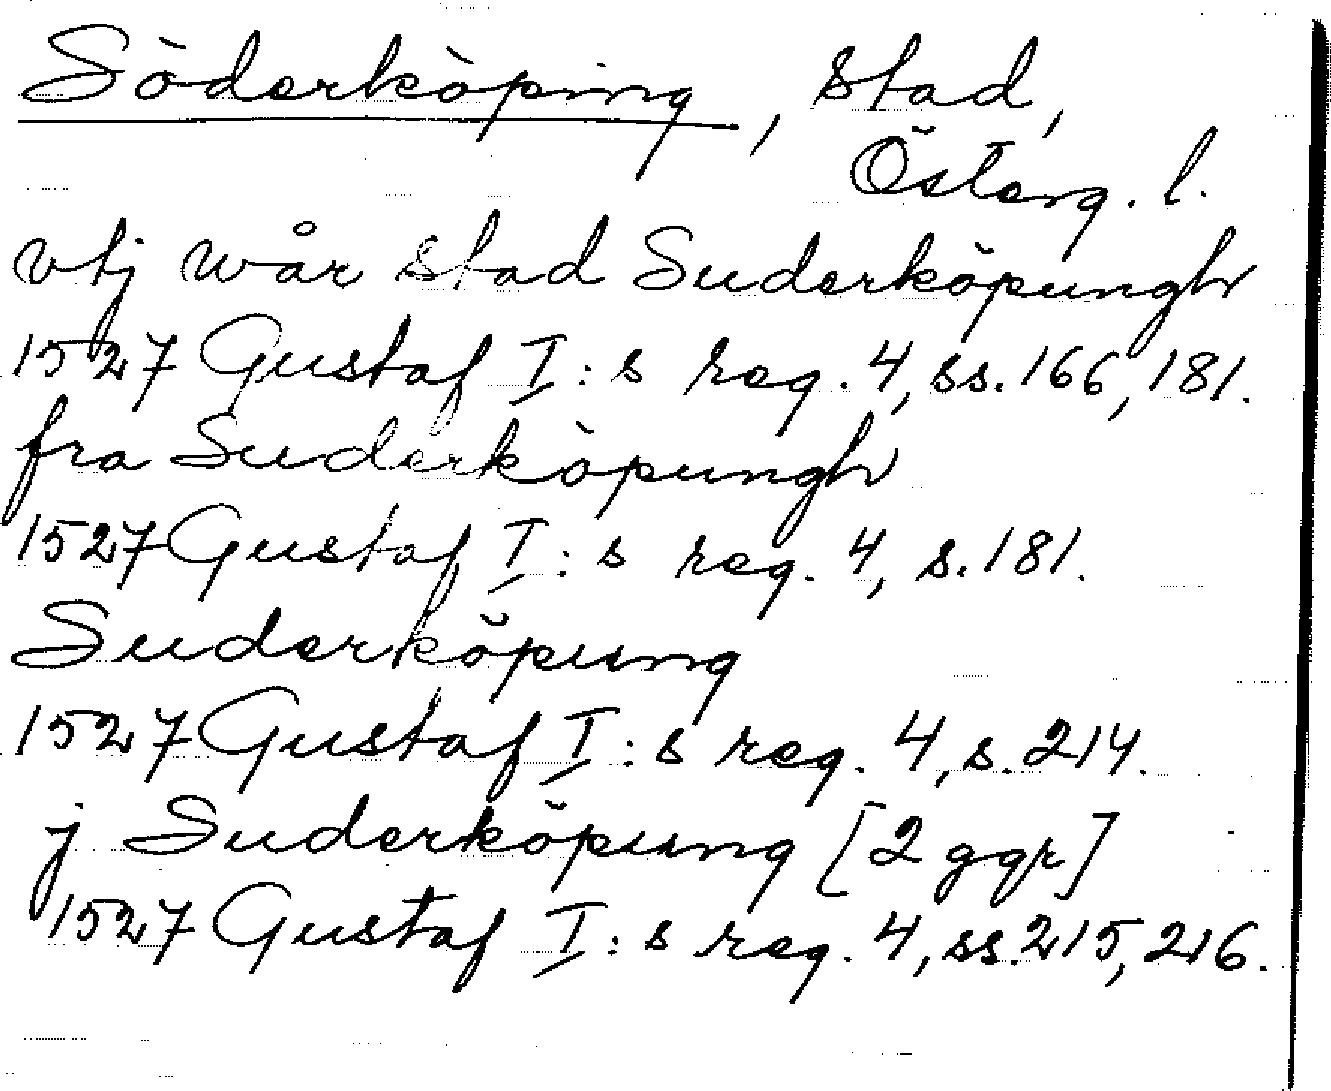 Söderköping, stad,
Österg. l.
vtj wår stad Suderköpungh
1527 Gustaf I:s reg. 4, ss. 166, 181.
fra Suderköpungh
1527 Gustaf I:s reg. 4, s. 181.
Suderköpung
1527 Gustaf I:s reg. 4, s. 214.
j Suderköpung [2 ggr]
1527 Gustaf I:s reg. 4, ss. 215, 216.